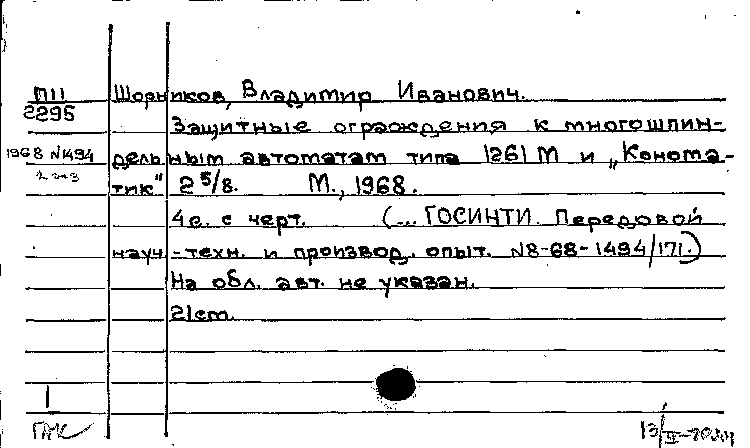 П11
2295
Шорников, Владимир Иванович.
Защитные ограждения к многошпин-
1968 №1494
дельным автоматам типа 1261 М и „Конома-
2 экз
тик" 2 5/8. М., 1968.
4с. с черт. (... ГОСИНТИ. Передовой
науч.-техн. и производ. опыт. №8-68-1494/171.)
На обл. авт. не указан.
21cm.
1
ГАК